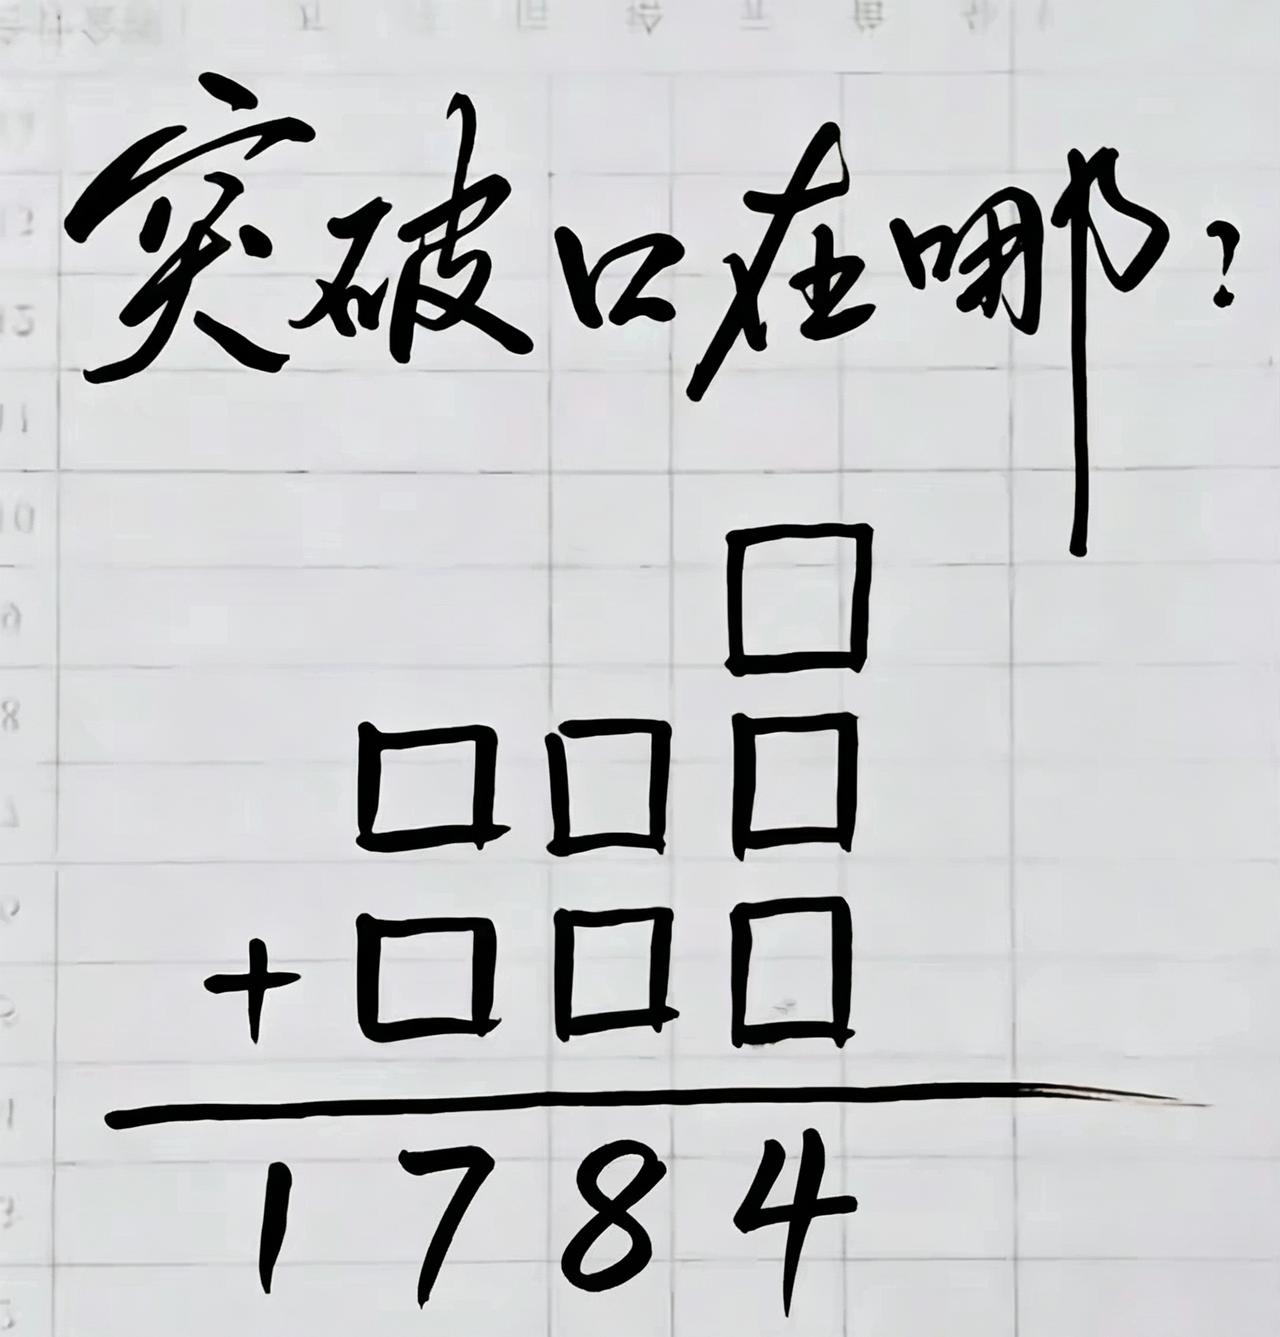 突破口在哪?
□
□□□
+□□□
1784